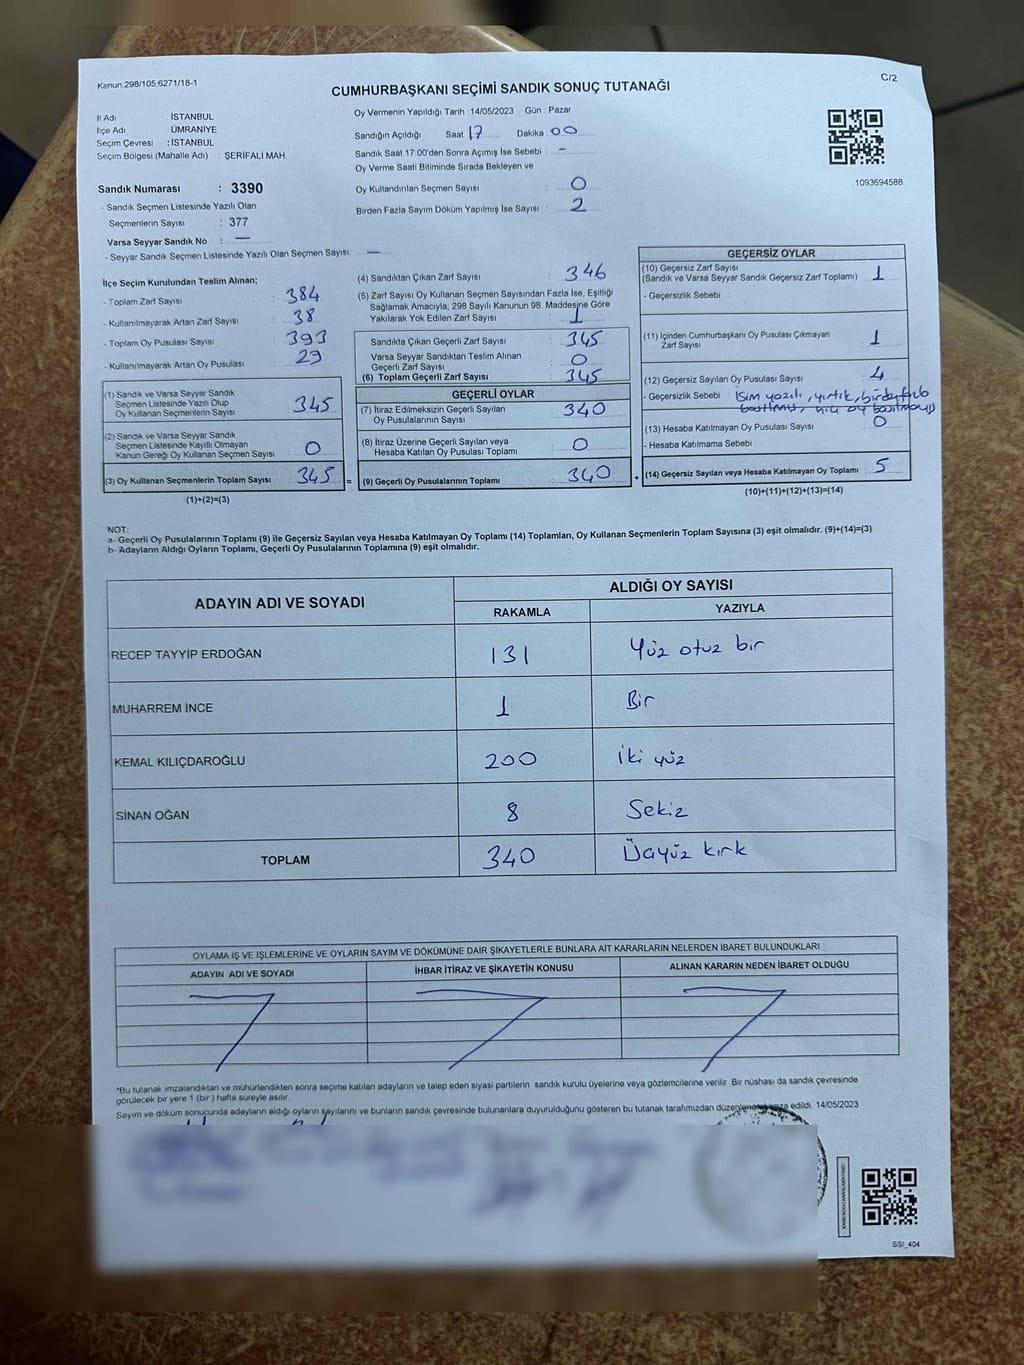 Kanun:298/105,6271/18-1
C/2
CUMHURBAŞKANI SEÇİMİ SANDIK SONUÇ TUTANAĞI
İl Adı İSTANBUL
İlçe Adı ÜMRANİYE
Seçim Çevresi : İSTANBUL
Seçim Bölgesi (Mahalle Adı) : ŞERİFALİ MAH
Sandık Numarası : 3390
- Sandık Seçmen Listesinde Yazılı Olan
Seçmenlerin Sayısı : 377
Varsa Seyyar Sandık No : —
- Seyyar Sandık Seçmen Listesinde Yazılı Olan Seçmen Sayısı —
Oy Vermenin Yapıldığı Tarih : 14/05/2023 Gün : Pazar
Sandığın Açıldığı Saat 17 Dakika 00
Sandık Saat 17:00'den Sonra Açımış İse Sebebi : -
Oy Verme Saati Bitiminde Sırada Bekleyen ve
Oy Kullandırılan Seçmen Sayısı : 0
Birden Fazla Sayım Döküm Yapılmış İse Sayısı : 2
1093694588
İlçe Seçim Kurulundan Teslim Alınan;
- Toplam Zarf Sayısı : 384
- Kullanılmayarak Artan Zarf Sayısı : 38
- Toplam Oy Pusulası Sayısı : 393
- Kullanılmayarak Artan Oy Pusulası : 29
(1) Sandık ve Varsa Seyyar Sandık
Seçmen Listesinde Yazılı Olup
Oy Kullanan Seçmenlerin Sayısı : 345
(2) Sandık ve Varsa Seyyar Sandık
Seçmen Listesinde Kayıtlı Olmayan
Kanun Gereği Oy Kullanan Seçmen Sayısı : 0
(3) Oy Kullanan Seçmenlerin Toplam Sayısı : 345 =
(1)+(2)=(3)
(4) Sandıktan Çıkan Zarf Sayısı : 346
(5) Zarf Sayısı Oy Kullanan Seçmen Sayısından Fazla İse, Eşitliği
Sağlamak Amacıyla; 298 Sayılı Kanunun 98. Maddesine Göre
Yakılarak Yok Edilen Zarf Sayısı : 1
Sandıkta Çıkan Geçerli Zarf Sayısı : 345
Varsa Seyyar Sandıktan Teslim Alınan
Geçerli Zarf Sayısı : 0
(6) Toplam Geçerli Zarf Sayısı : 345
GEÇERLİ OYLAR
(7) İtiraz Edilmeksizin Geçerli Sayılan
Oy Pusulalarının Sayısı : 340
(8) İtiraz Üzerine Geçerli Sayılan veya
Hesaba Katılan Oy Pusulası Toplamı : 0
(9) Geçerli Oy Pusulalarının Toplamı : 340 +
GEÇERSİZ OYLAR
(10) Geçersiz Zarf Sayısı
(Sandık ve Varsa Seyyar Sandık Geçersiz Zarf Toplamı) : 1
- Geçersizlik Sebebi :
(11) İçinden Cumhurbaşkanı Oy Pusulası Çıkmayan
Zarf Sayısı : 1
(12) Geçersiz Sayılan Oy Pusulası Sayısı : 4
- Geçersizlik Sebebi : isim yazılı, yırtık, birden fazla
basılmış, hiç oy basılmayış
(13) Hesaba Katılmayan Oy Pusulası Sayısı : 0
- Hesaba Katılmama Sebebi :
(14) Geçersiz Sayılan veya Hesaba Katılmayan Oy Toplamı : 5
(10)+(11)+(12)+(13)=(14)
NOT:
a- Geçerli Oy Pusulalarının Toplamı (9) ile Geçersiz Sayılan veya Hesaba Katılmayan Oy Toplamı (14) Toplamları, Oy Kullanan Seçmenlerin Toplam Sayısına (3) eşit olmalıdır. (9)+(14)=(3)
b- Adayların Aldığı Oyların Toplamı, Geçerli Oy Pusulalarının Toplamına (9) eşit olmalıdır.
ADAYIN ADI VE SOYADI
ALDIĞI OY SAYISI
RAKAMLA YAZIYLA
RECEP TAYYİP ERDOĞAN 131 Yüz otuz bir
MUHARREM İNCE 1 Bir
KEMAL KILIÇDAROĞLU 200 iki yüz
SİNAN OĞAN 8 Sekiz
TOPLAM 340 Üçyüz kırk
OYLAMA İŞ VE İŞLEMLERİNE VE OYLARIN SAYIM VE DÖKÜMÜNE DAİR ŞİKAYETLERLE BUNLARA AİT KARARLARIN NELERDEN İBARET BULUNDUKLARI
ADAYIN ADI VE SOYADI İHBAR İTİRAZ VE ŞİKAYETİN KONUSU ALINAN KARARIN NEDEN İBARET OLDUĞU
*Bu tutanak imzalandıktan ve mühürlendikten sonra seçime katılan adayların ve talep eden siyasi partilerin sandık kurulu üyelerine veya gözlemcilerine verilir. Bir nüshası da sandık çevresinde
görülecek bir yere 1 (bir) hafta süreyle asılır.
Sayım ve döküm sonucunda adayların aldığı oyların sayılarını ve bunların sandık çevresinde bulunanlara duyurulduğunu gösteren bu tutanak tarafımızdan düzenlenerek imza edildi. 14/05/2023
SSI_404